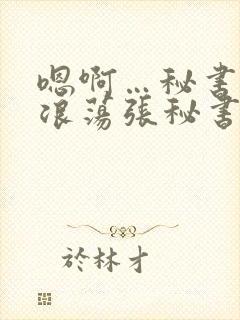 嗯啊…秘书
浪荡張秘書
於林才